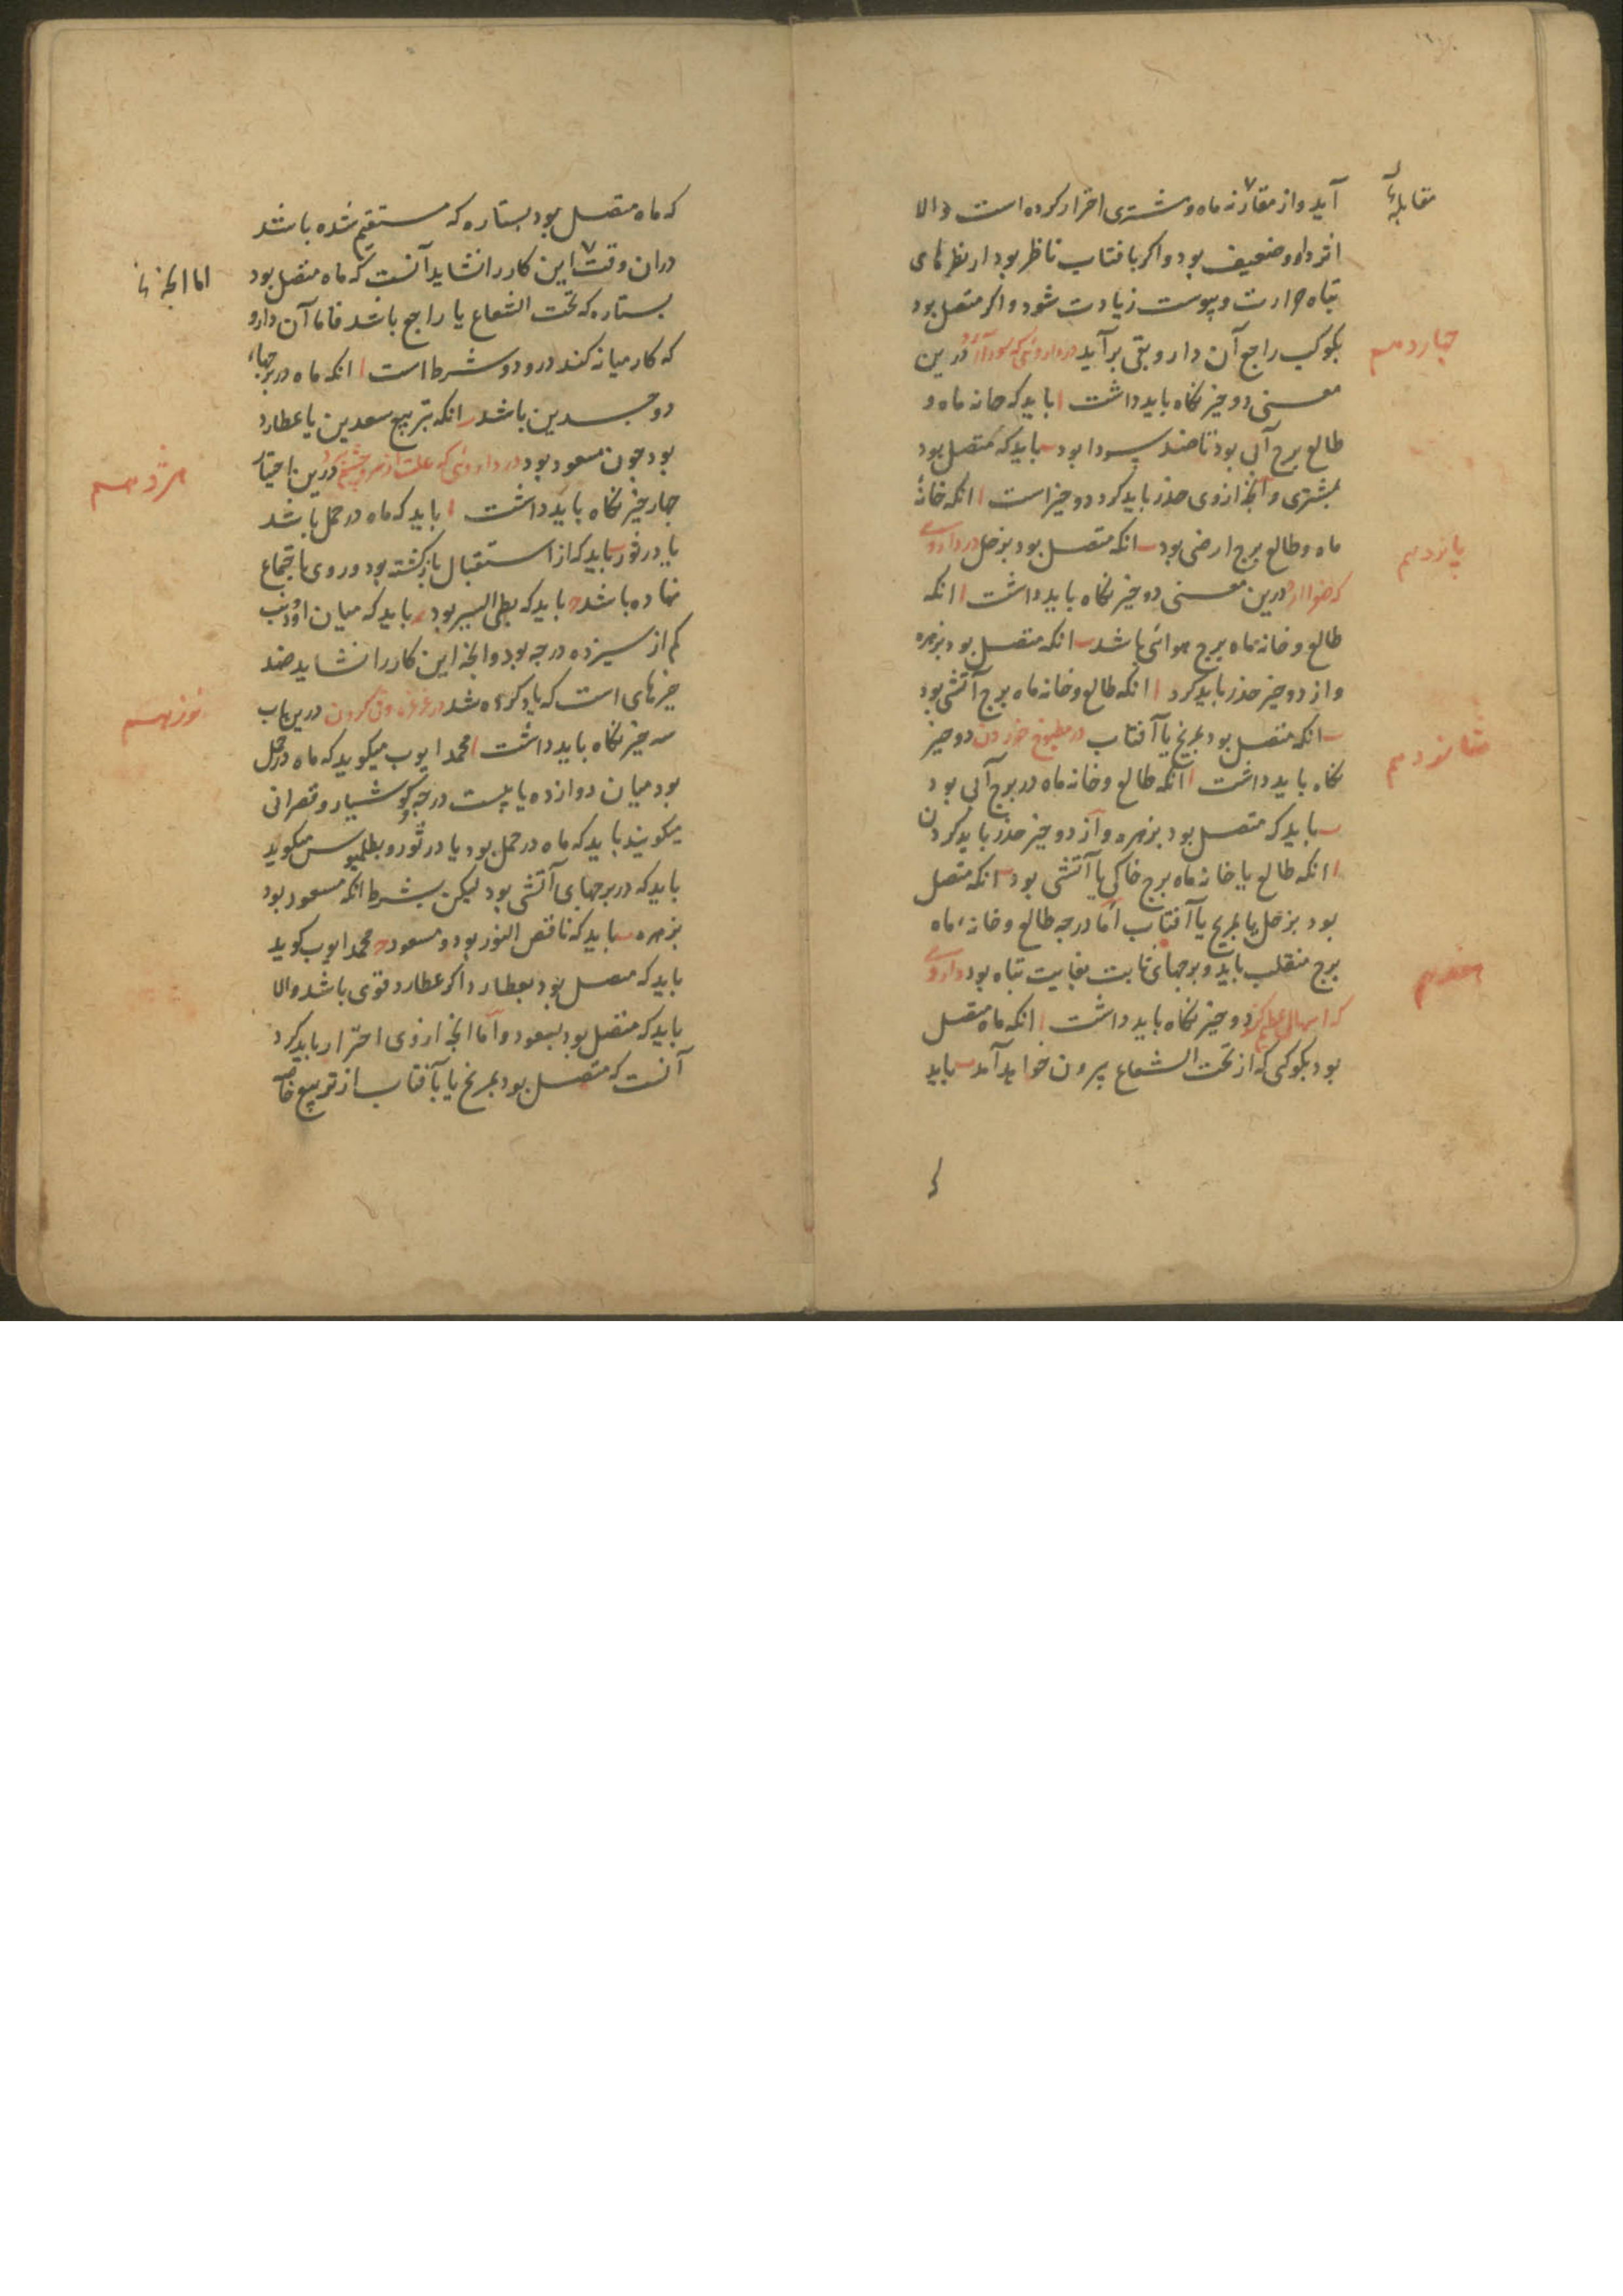 مقابله
آید و از مقارنه ماه و مشتری احتراز کرده است والا
اثر دارو ضعیف بود و اکر بافتاب ناظر بود از نظرهای
تباه حرارت و یبوست زیادت شود و اکر متصل بود
بکوکب راجع آن دارو بقی برآید در داروئی که سودا آرد درین
چهاردهم
معنی دو چیز نکاه باید داشت ا باید که خانه ماه و
طالع برج آبی بود تا ضد سودا بود ب باید که متصل بود
بمشتری و آنچه ازوی حذر باید کرد دو چیز است ا انکه خانهٔ
ماه و طالع برج ارضی بود ب انکه متصل بود بزحل در داروی
پانزدهم
که صفرا آرد درین معنی دو چیز نکاه باید داشت ا انکه
طالع و خانه ماه برج هوائی باشد ب انکه متصل بود بزهره
و از دو چیز حذر باید کرد ا انکه طالع و خانه ماه برج آتشی بود
ب انکه متصل بود بمریخ یا آفتاب در مطبوخ خوردن دو چیز
شانزدهم
نکاه باید داشت ا آنکه طالع و خانه ماه در برج آبی بود
ب باید که متصل بود بزهره و از دو چیز حذر باید کردن
ا انکه طالع یا خانه ماه برج خاکی یا آتشی بود ب انکه متصل
بود بزحل یا بمریخ یا آفتاب اما درجه طالع و خانه ماه
برج منقلب باید و برجهای ثابت بغایت تباه بود داروی
هفدهم
که اسهال کند دو چیز نکاه باید داشت ا انکه ماه متصل
بود بکوکبی که از تحت الشعاع بیرون خواهد آمد ب باید
که ماه متصل بود بستاره که مستقیم شده باشد
دران وقت این کار را نشاید آنست که ماه متصل بود
اما انچه
بستاره که تحت الشعاع یا راجع باشد فاما آن دارو
که کار میانه کند درو دو شرط است ا انکه ماه در برجهاء
دو جسدین باشد ب انکه بتربیع سعدین یا عطارد
بود چون مسعود بود در داروئی که علت از سر و چشم برد درین احتیاط
هژدهم
چهار چیز نکاه باید داشت ا باید که ماه در حمل باشد
یا در ثور ب باید که از استقبال بازکشته بود و روی باجتماع
نهاده باشد ج باید که بطی السیر بود د باید که میان او و ذنب
کم از سیزده درجه بود و انچه این کار را نشاید ضد
چیزهای است که یاد کرده شد در غرغره و قی کردن درین باب
نوزدهم
سه چیز نکاه باید داشت ا محمد ایوب میکوید که ماه در حمل
بود میان دوازده یا بیست درجه و کوشیار و قصرانی
میکویند باید که ماه در حمل بود یا در ثور و بطلمیوس میکوید
باید که در برجهای آتشی بود لیکن بشرط انکه مسعود بود
بزهره ب باید که ناقص النور بود و مسعود ج محمد ایوب کوید
باید که متصل بود بعطارد اکر عطارد قوی باشد والا
باید که متصل بود بسعود و اما انچه ازوی احتراز باید کرد
آنست که متصل بود بمریخ یا بآفتاب از تربیع خاصه